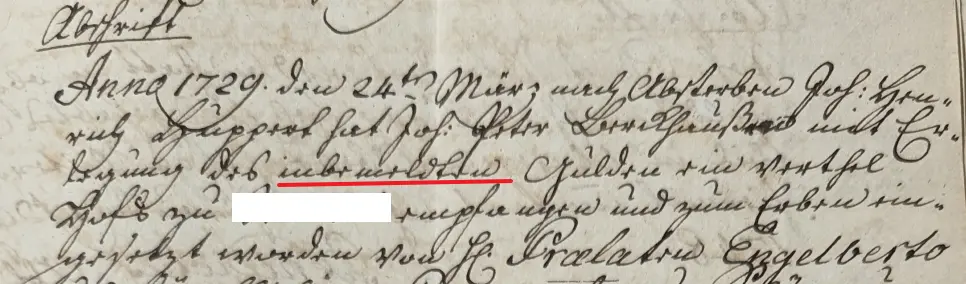 Abschrift
Anno 1729. den 24ten März nach Absterben Joh: Hen-
rich Huppert hat Joh: Peter Berckhaußen mit Er-
legung des inbemeldten Gülden ein verthel
Hofs zu empfangen und zum Erben ein-
gesetzt worden von H. Prælaten Engelberto